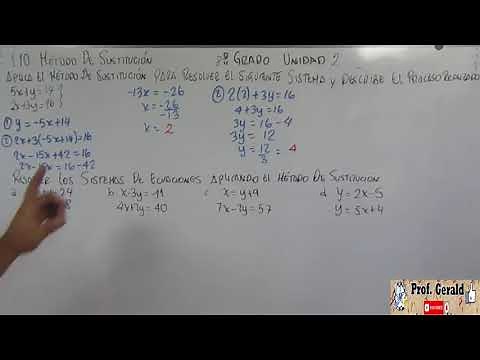 1.10 MÉTODO DE SUSTITUCIÓN 8º GRADO UNIDAD 2
APLICA EL MÉTODO DE SUSTITUCIÓN PARA RESOLVER EL SIGUIENTE SISTEMA Y DESCRIBE EL PROCESO REALIZADO
5x+y=14
2x+3y=16
① y = -5x+14
② 2x+3(-5x+14)=16
2x-15x+42=16
2x-15x=16-42
-13x=-26
x=-26/-13
x=2
② 2(2)+3y=16
4+3y=16
3y=16-4
3y=12
y=12/3=4
RESOLVER LOS SISTEMAS DE ECUACIONES APLICANDO EL MÉTODO DE SUSTITUCIÓN
a =24
b. x-3y=-11
4x+2y=40
c x=y+9
7x-2y=57
d y=2x-5
y=5x+4
Prof. Gerald